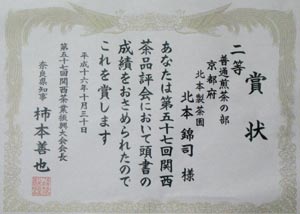 賞状
二等
普通煎茶の部
京都府
北本製茶園
北本錦司様
あなたは第五十七回関西
茶品評会において頭書の
成績をおさめられたので
これを賞します
平成十六年十月三十日
第五十七回関西茶業振興大会会長
奈良県知事
柿本善也